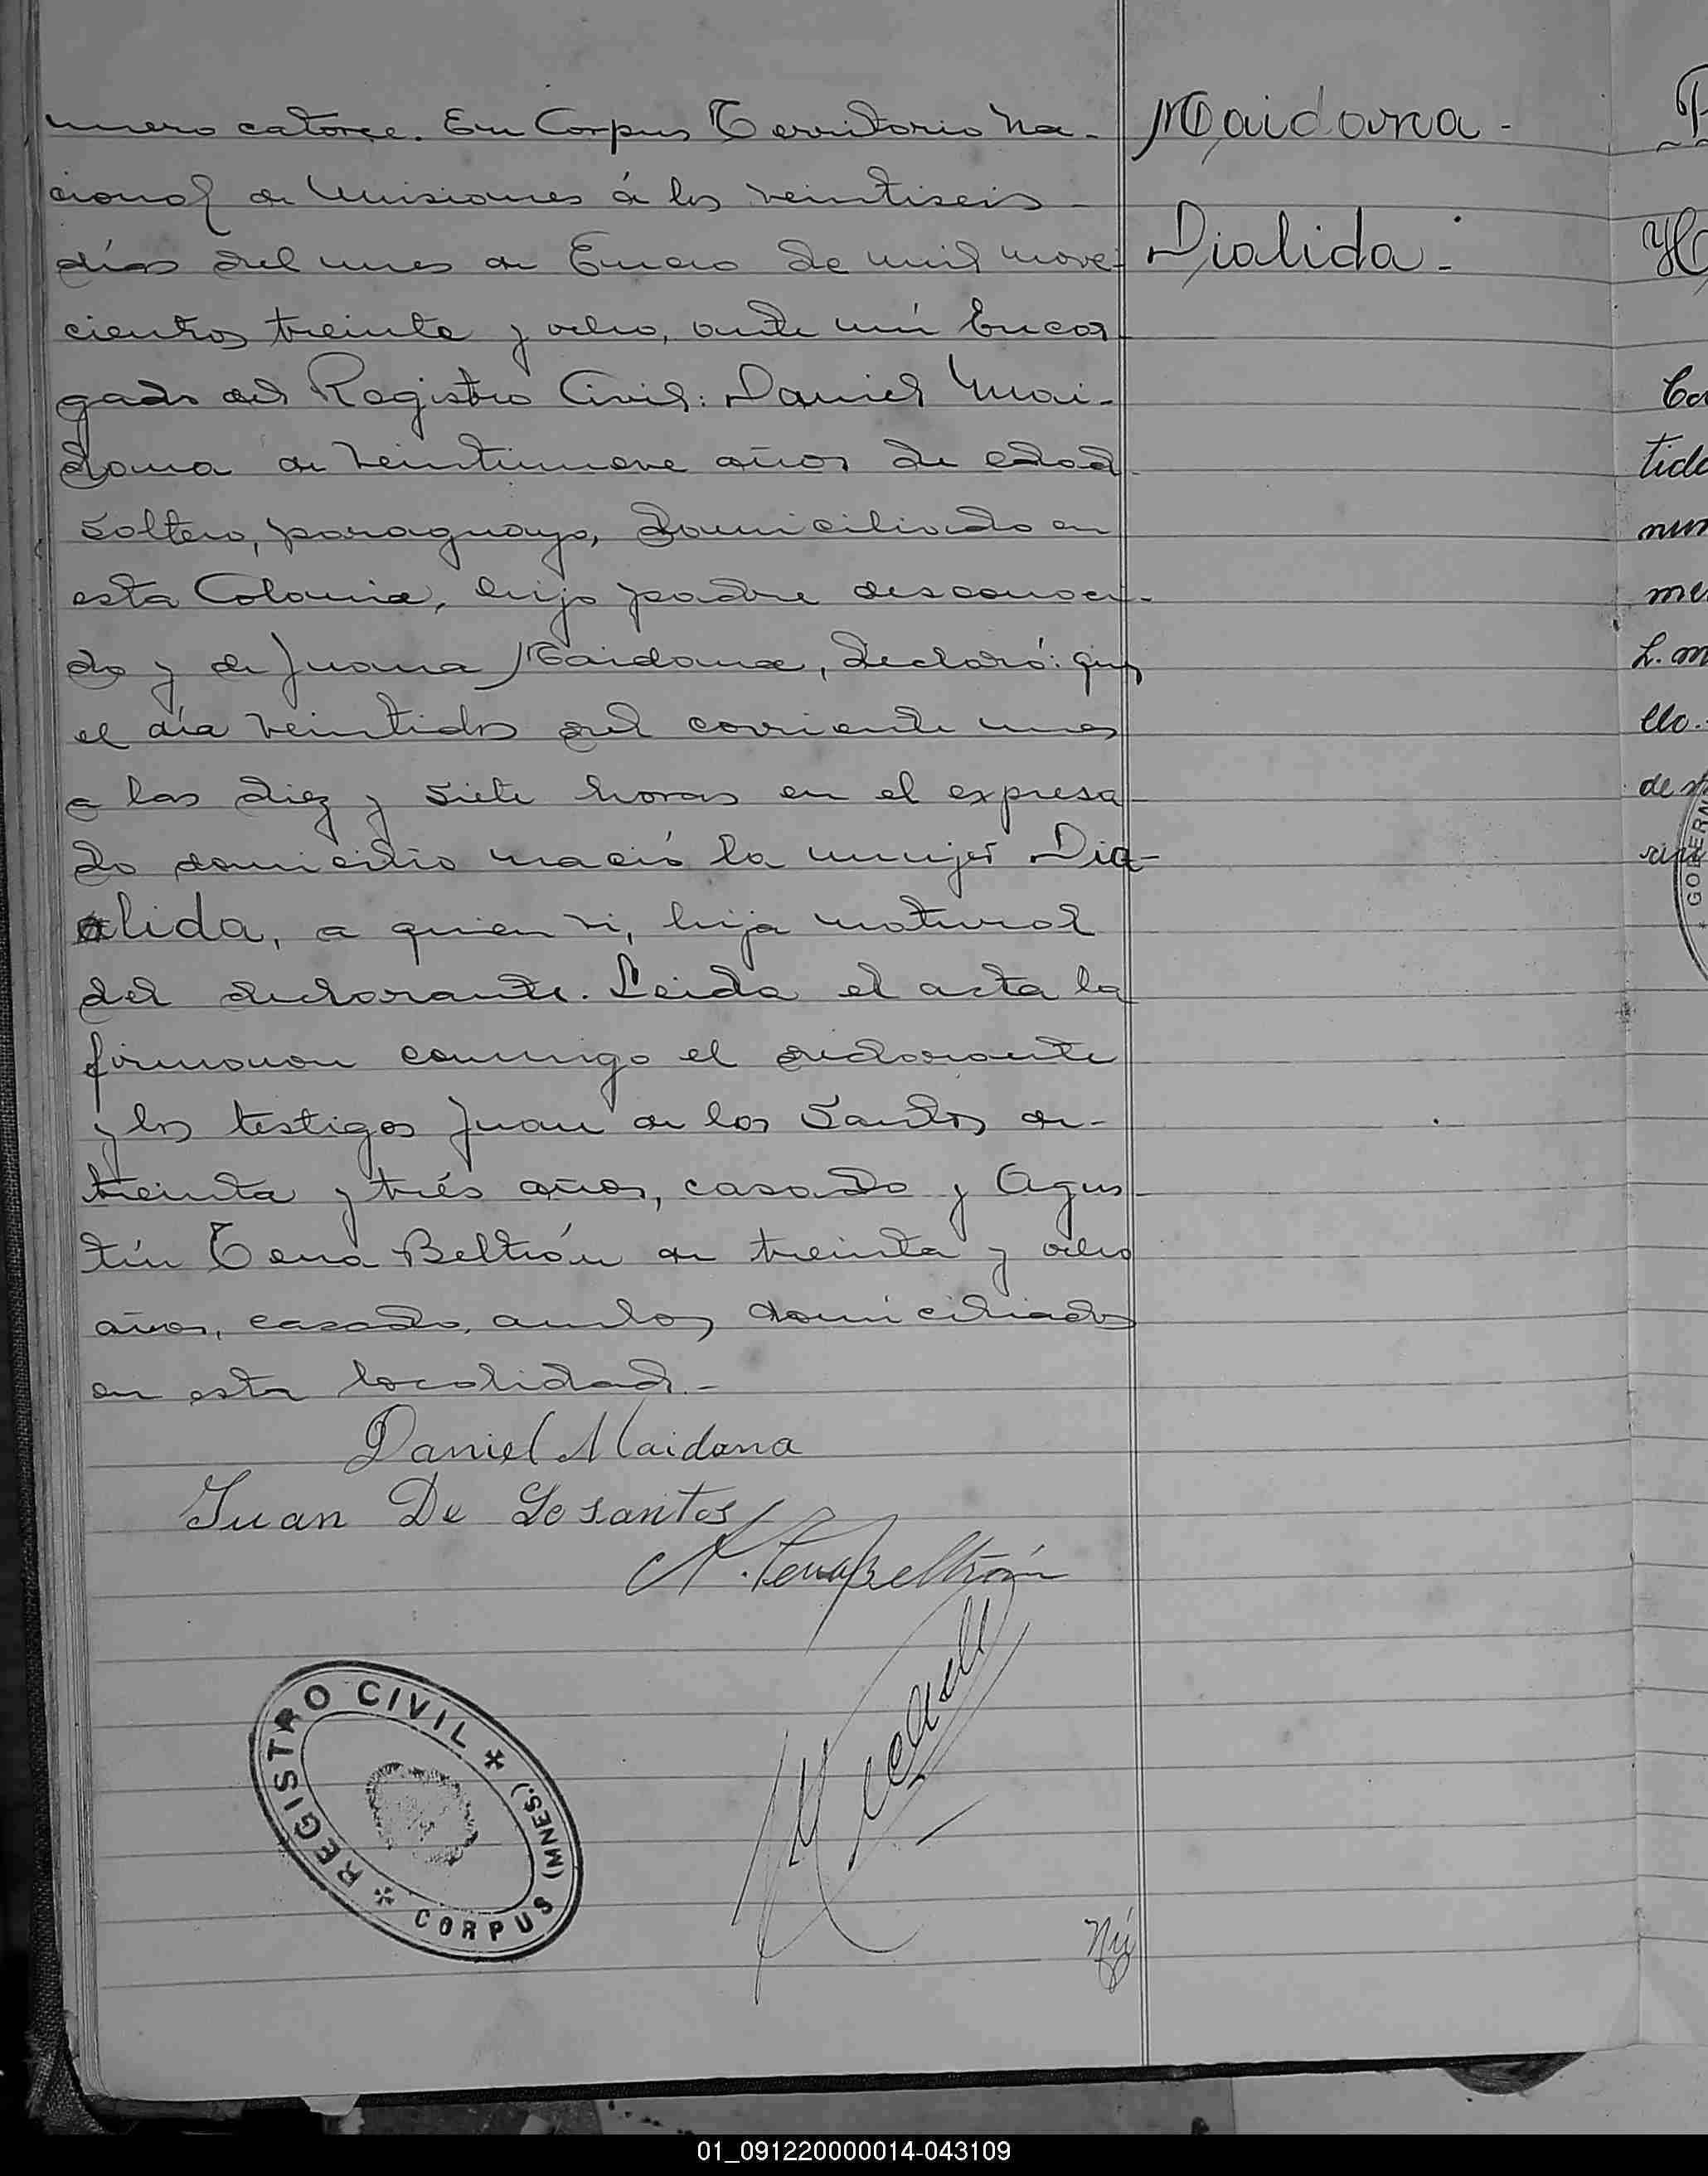 mero catorce. En Corpus Territorio Na-
cional de Misiones á los veintiseis
días del mes de Enero de mil nove-
cientos treinta y ocho, ante mí Encar
gado del Registro Civil: Daniel Mai-
dana de veintinueve años de edad
soltero, paraguayo, domiciliado en
esta Colonia, hijo padre desconoci-
do y de Juana Maidana, declaró: que
el día veintidos del corriente mes
a las diez y siete horas en el expresa
do domicilio nació la mujer Dia-
alida, a quien vi, hija natural
del declarante. Leida el acta la
firmaron conmigo el declarante
y los testigos Juan de los Santos de-
treinta y trés años, casado y Agus
tín Tena Beltrán de treinta y ocho
años, casado, ambos domiciliados
en esta localidad.-
Daniel Maidana
Juan De Lo santos
A. Tena Beltrán
REGISTRO CIVIL
CORPUS (MNES.)
Nú
Maidana-
Dialida-
Ca
tida
num
me
L. m
llo.
de
GOBERN
01_091220000014-043109